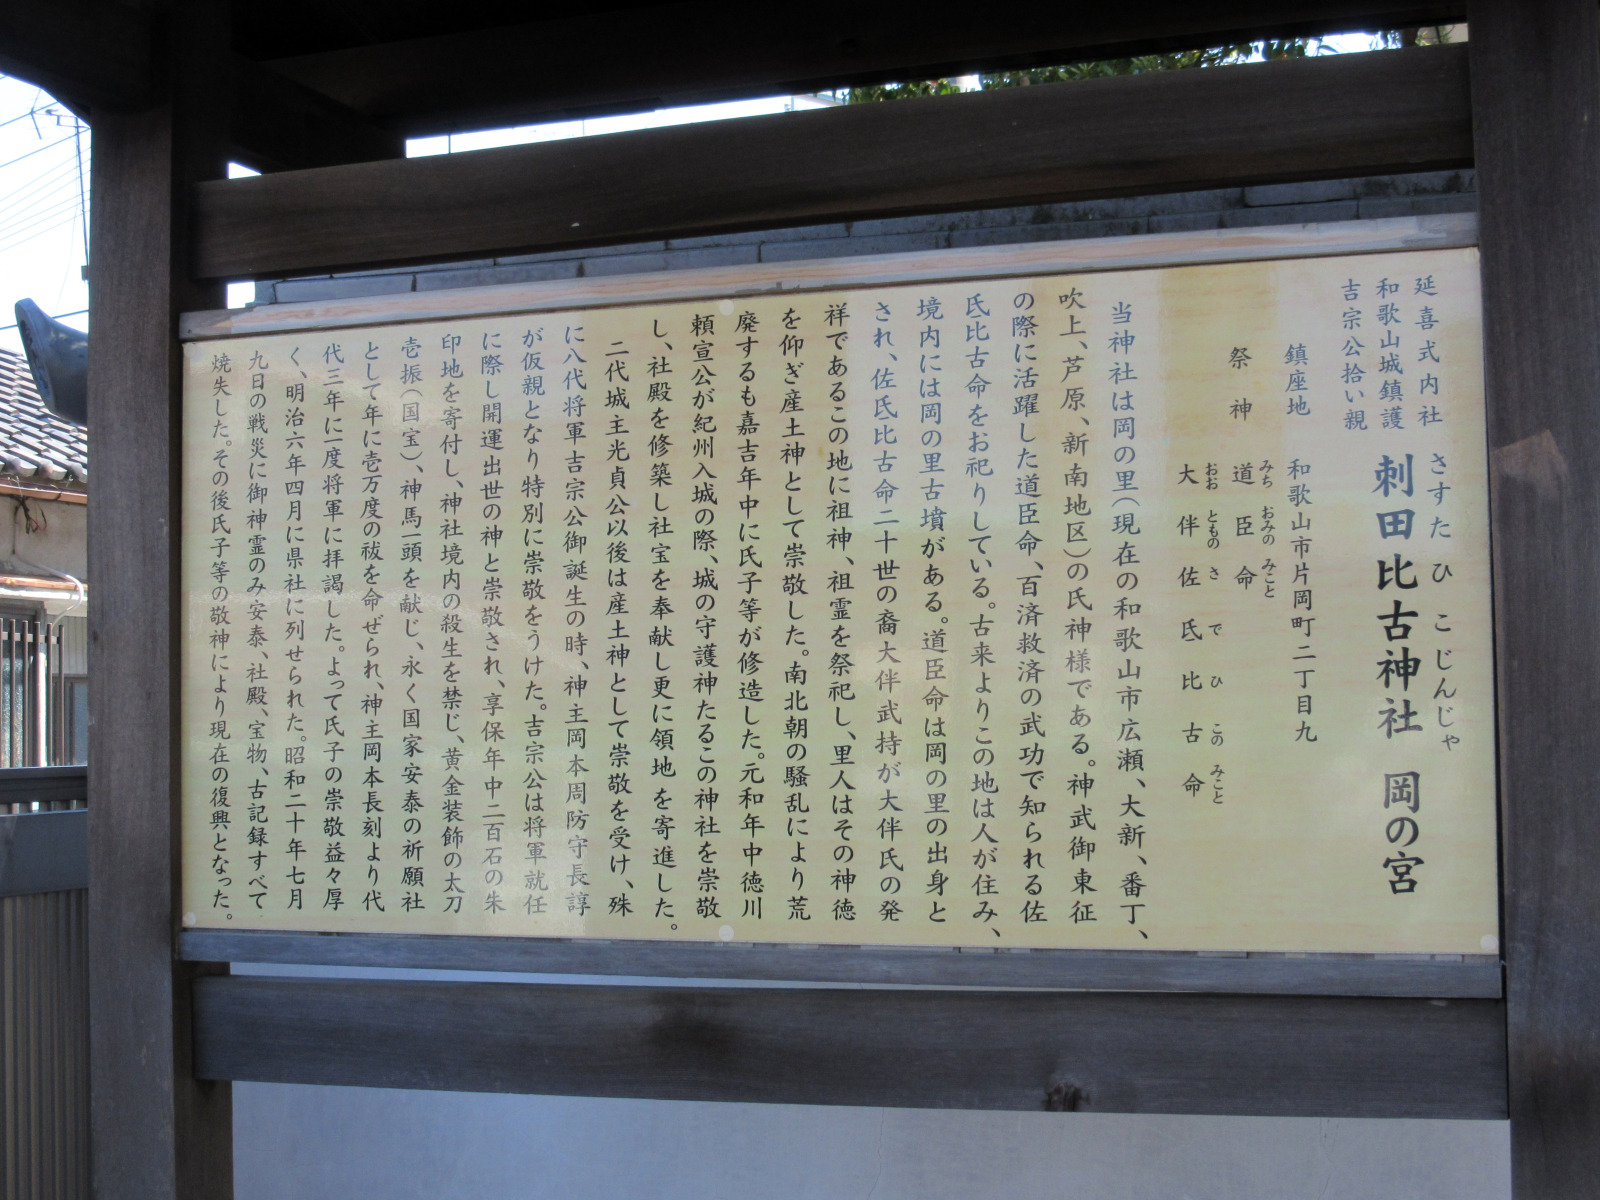 延喜式内社
和歌山城鎮護
吉宗公拾い親
さすたひこじんじゃ
刺田比古神社 岡の宮
鎮座地 和歌山市片岡町二丁目九
祭神 道臣命
みち おみの みこと
大伴佐氐比古命
おお とものさでひこのみこと
当神社は岡の里(現在の和歌山市広瀬、大新、番丁、
吹上、芦原、新南地区)の氏神様である。神武御東征
の際に活躍した道臣命、百済救済の武功で知られる佐
氐比古命をお祀りしている。古来よりこの地は人が住み、
境内には岡の里古墳がある。道臣命は岡の里の出身と
され、佐氐比古命二十世の裔大伴武持が大伴氏の発
祥であるこの地に祖神、祖霊を祭祀し、里人はその神徳
を仰ぎ産土神として崇敬した。南北朝の騒乱により荒
廃するも嘉吉年中に氏子等が修造した。元和年中徳川
頼宣公が紀州入城の際、城の守護神たるこの神社を崇敬
し、社殿を修築し社宝を奉献し更に領地を寄進した。
二代城主光貞公以後は産土神として崇敬を受け、殊
に八代将軍吉宗公御誕生の時、神主岡本周防守長諄
が仮親となり特別に崇敬をうけた。吉宗公は将軍就任
に際し開運出世の神と崇敬され、享保年中二百石の朱
印地を寄付し、神社境内の殺生を禁じ、黄金装飾の太刀
壱振(国宝)、神馬一頭を献じ、永く国家安泰の祈願社
として年に壱万度の祓を命ぜられ、神主岡本長刻より代
代三年に一度将軍に拝謁した。よって氏子の崇敬益々厚
く、明治六年四月に県社に列せられた。昭和二十年七月
九日の戦災に御神霊のみ安泰、社殿、宝物、古記録すべて
焼失した。その後氏子等の敬神により現在の復興となった。